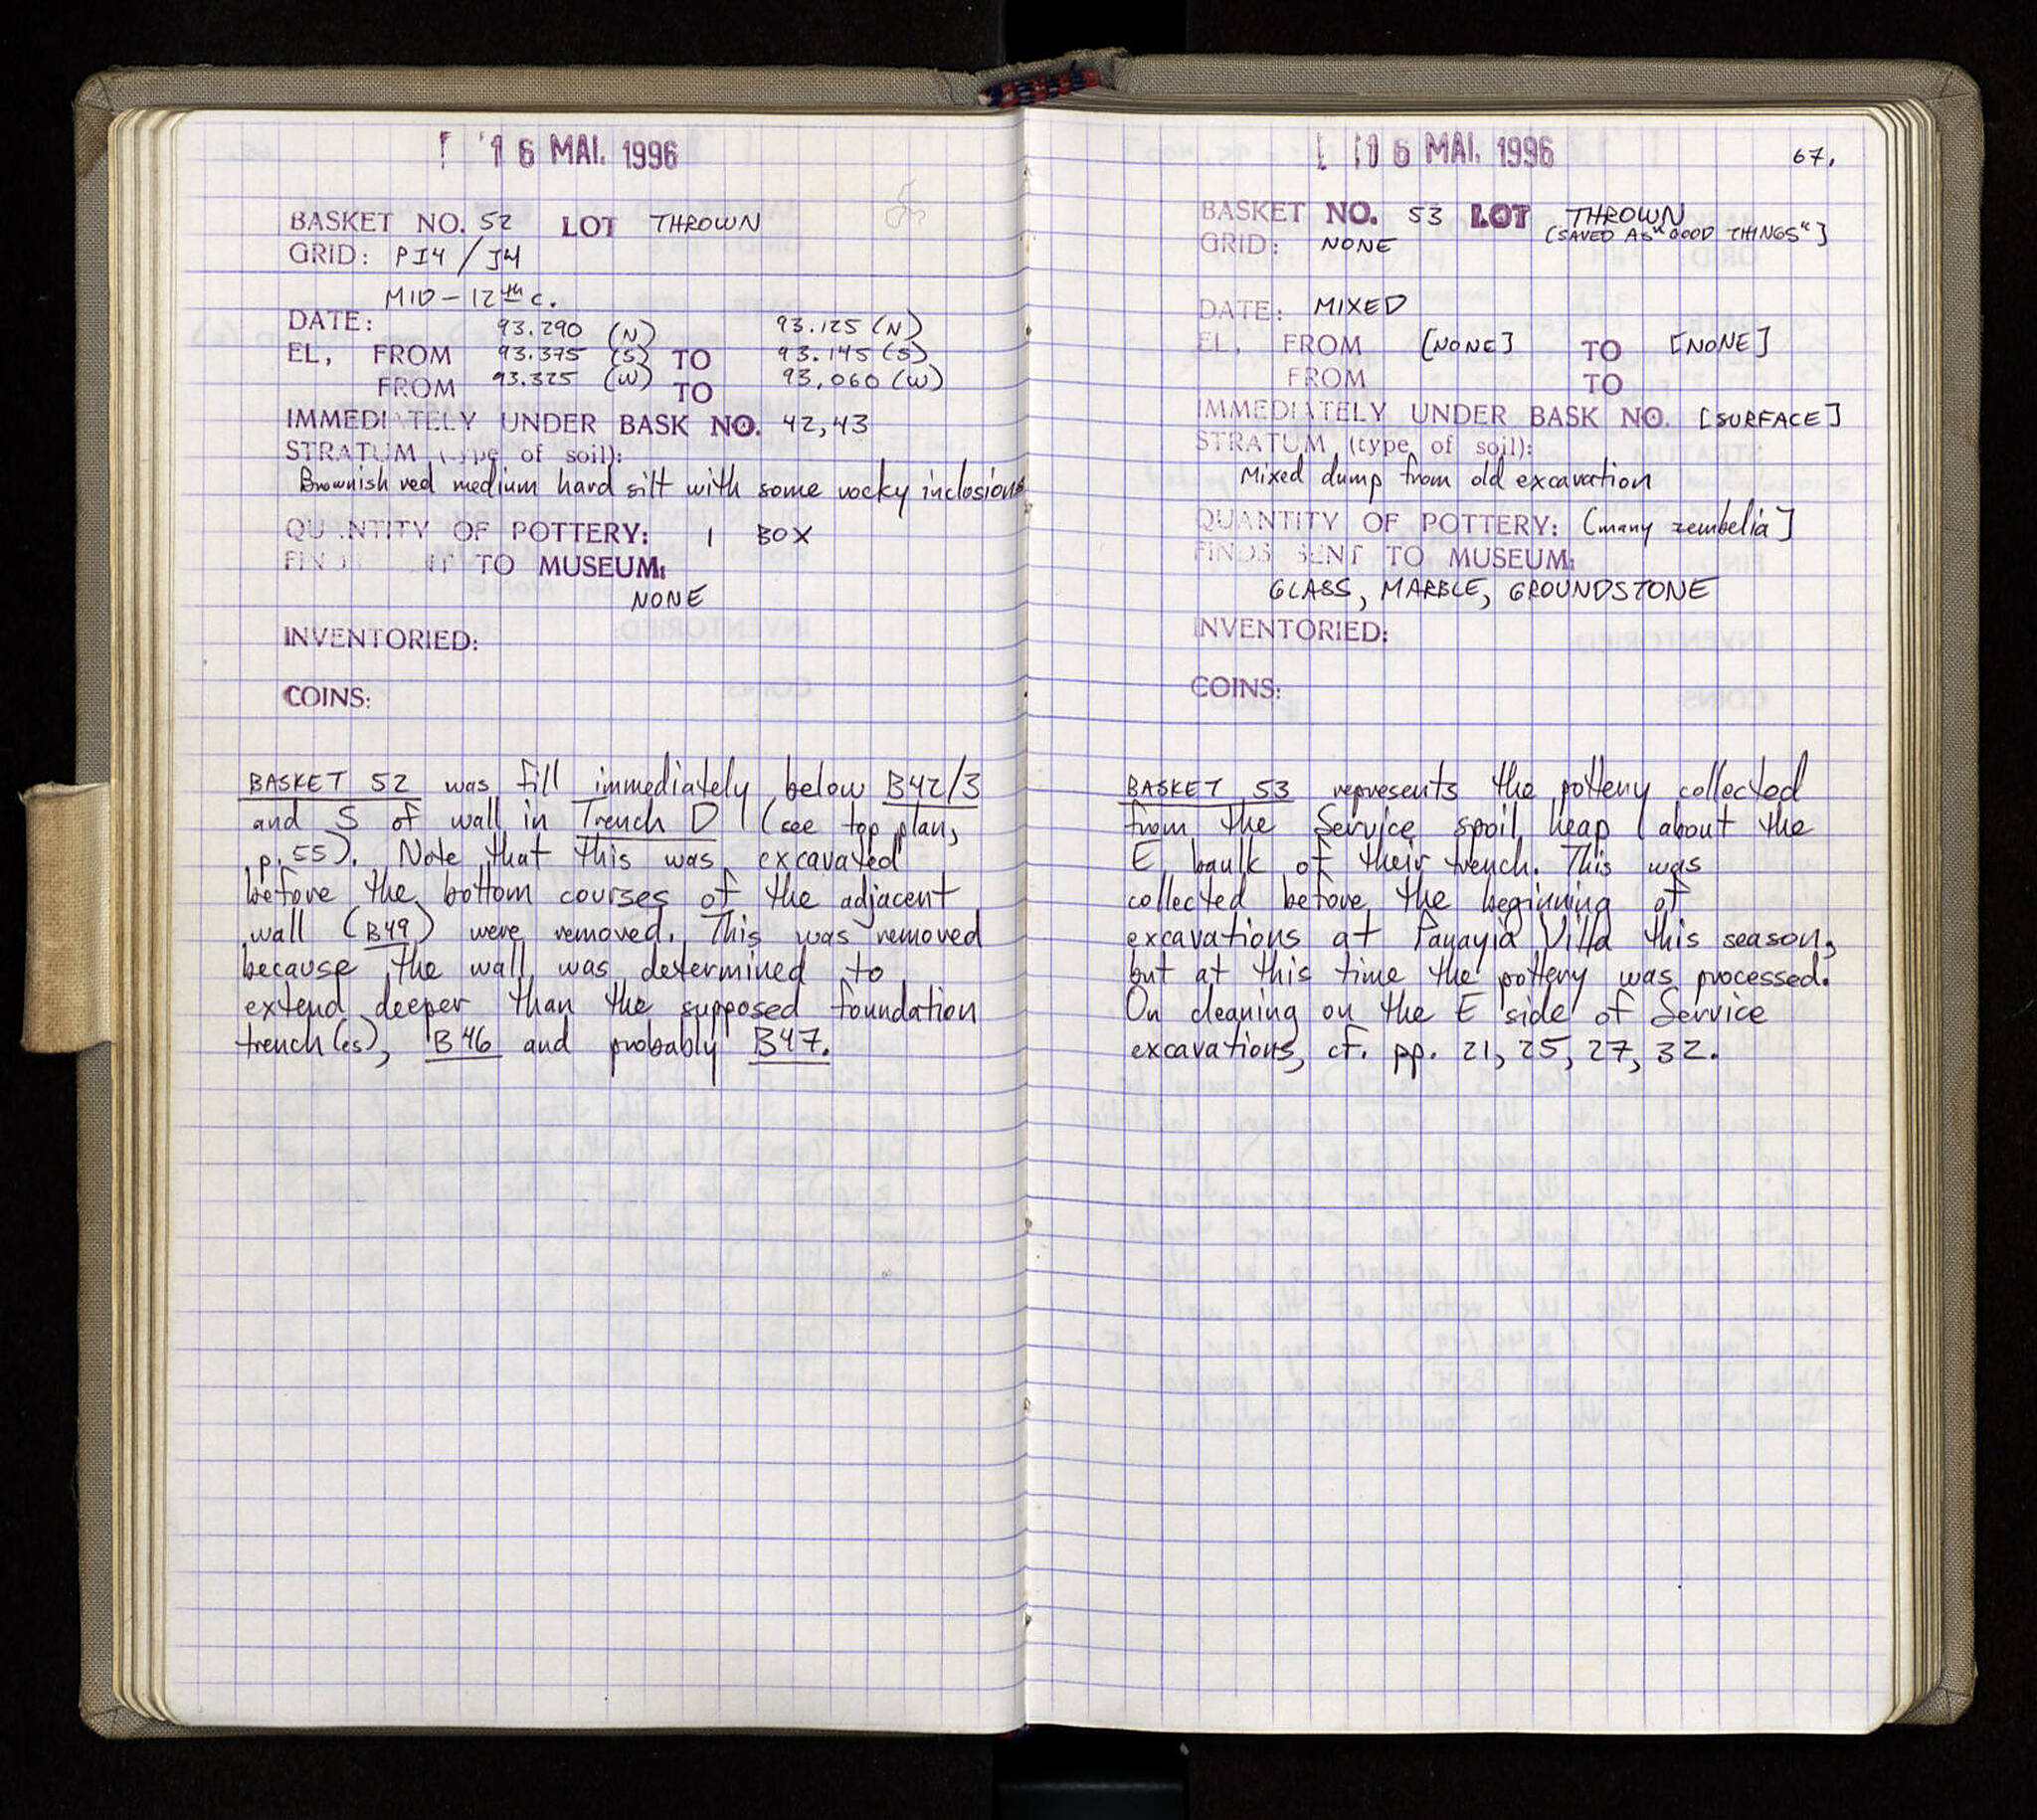 16 MAI. 1996
BASKET NO. 52 LOT THROWN
GRID: PI4/J4
MID-12th c.
DATE:
93.290 (N) 93.125 (N)
EL, FROM 93.375 (S) TO 93.145 (S)
FROM 93.325 (W) TO 93,060 (W)
IMMEDIATELY UNDER BASK NO. 42,43
STRATUM (type of soil):
Brownish red medium hard silt with some rocky inclosions
QUANTITY OF POTTERY: 1 BOX
FINDS SENT TO MUSEUM:
NONE
INVENTORIED:
COINS:
BASKET 52 was fill immediately below B42/3
and S of wall in Trench D (see top plan,
p. 55). Note that this was excavated
before the bottom courses of the adjacent
wall (B49) were removed. This was removed
because the wall was determined to
extend deeper than the supposed foundation
trench(es), B46 and probably B47.
16 MAI. 1996 67.
BASKET NO. 53 LOT THROWN
(SAVED AS "GOOD THINGS"]
GRID: NONE
DATE: MIXED
EL, FROM [NONE] TO [NONE]
FROM TO
IMMEDIATELY UNDER BASK NO. [SURFACE]
STRATUM (type of soil):
Mixed dump from old excavation
QUANTITY OF POTTERY: (many zembelia]
FINDS SENT TO MUSEUM:
GLASS, MARBLE, GROUNDSTONE
INVENTORIED:
COINS:
BASKET 53 represents the pottery collected
from the Service spoil heap about the
E baulk of their trench. This was
collected before the beginning of
excavations at Panayia Villa this season,
but at this time the pottery was processed.
On cleaning on the E side of Service
excavations, cf. pp. 21, 25, 27, 32.